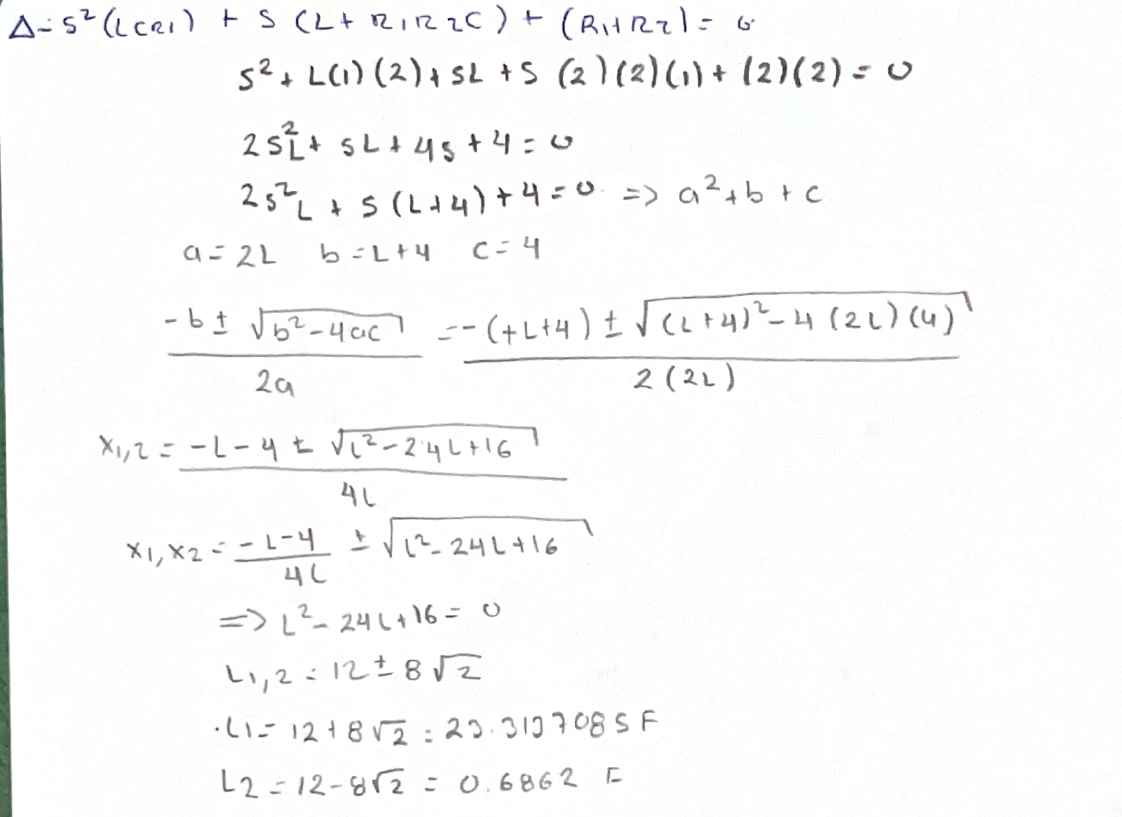 Δ = S²(LCR1) + S (L + R1R2C) + (R1+R2) = 0
S² + L(1)(2) + SL + S (2)(2)(1) + (2)(2) = 0
2S²L + SL + 4S + 4 = 0
2S²L + S (L+4) + 4 = 0 => a² + b + c
a = 2L b = L+4 c = 4
-b ± √b²-4ac = -(+L+4) ± √(L+4)²-4(2L)(4)
2a 2(2L)
X1,2 = -L-4 ± √L²-24L+16
4L
X1,X2 = -L-4 ± √L²-24L+16
4L
=> L²-24L+16 = 0
L1,2 = 12 ± 8√2
L1 = 12+8√2 = 23.3137085 F
L2 = 12-8√2 = 0.6862 F